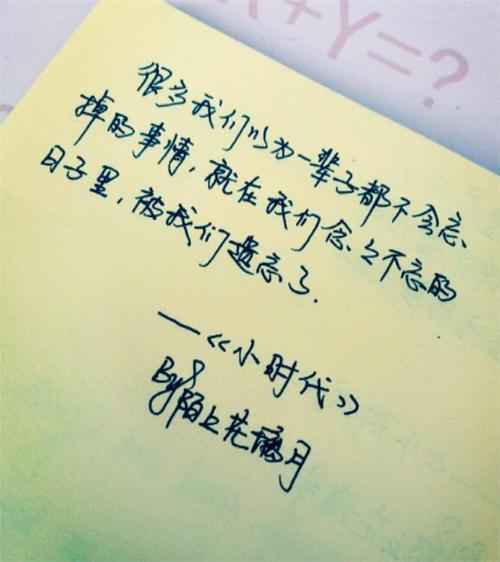 X+Y=?
很多我们以为一辈子都不会忘
掉的事情，就在我们念念不忘的
日子里，被我们遗忘了.
—《小时代》
By 陌上花漓月